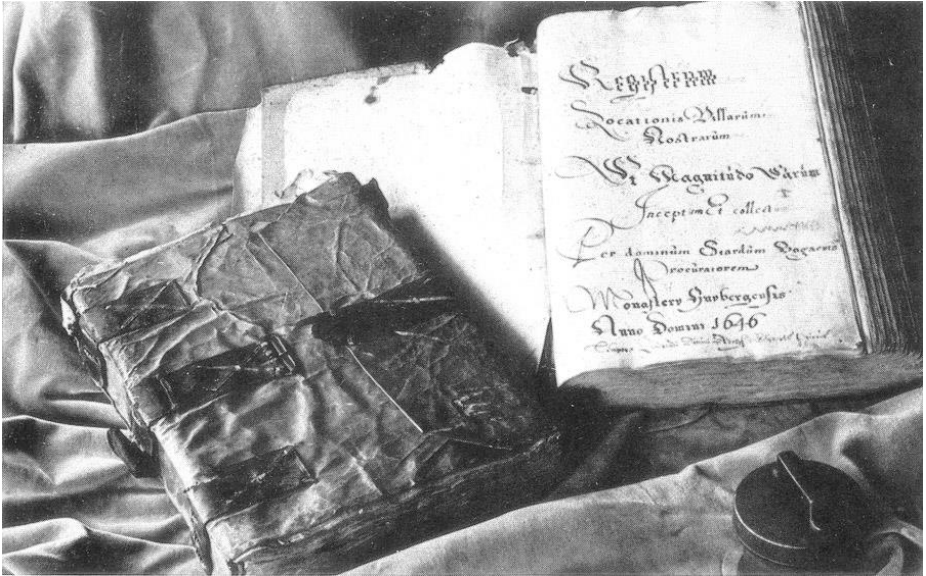 Registrum
Locationis Villarum
Nostrarum
Et Magnitudo Earum
Inceptum Et collect
Per dominum Siardum Bogaerts
Procuratorem
Monastery Huybergensis
Anno Domini 1646